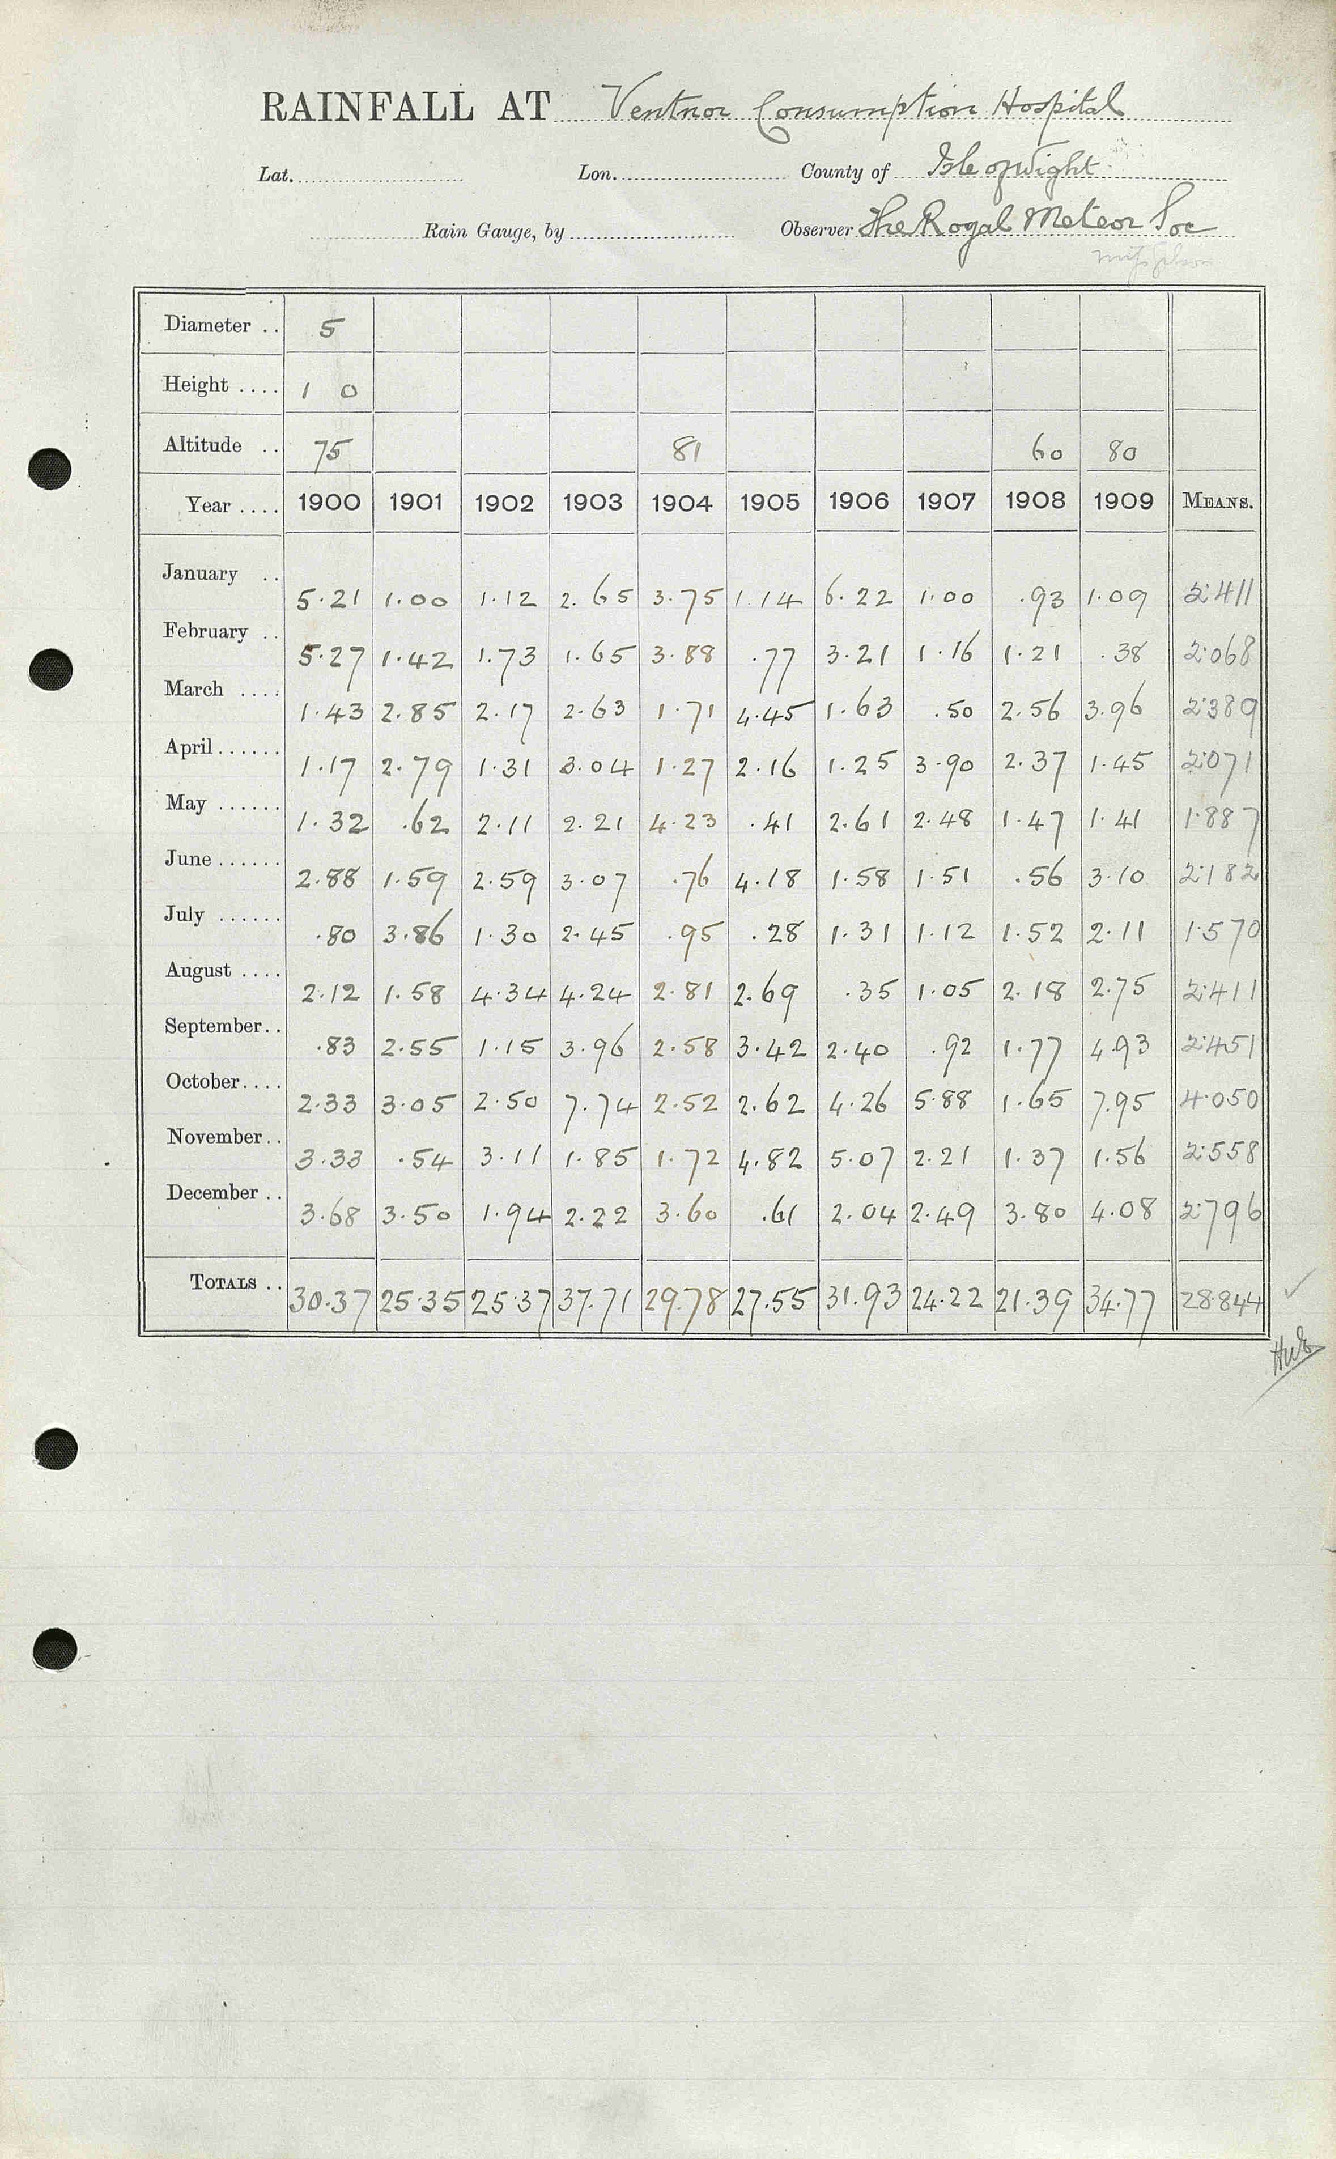 RAINFALL AT Ventnor Consumption Hospital
Lat. Lon. County of Isle of Wight
Rain Gauge, by Observer The Royal Meteor Soc
Diameter .. 5
Height .... 1 0
Altitude .. 75 81 60 80
Year .... 1900 1901 1902 1903 1904 1905 1906 1907 1908 1909 MEANS.
January .. 5.21 1.00 1.12 2.65 3.75 1.14 6.22 1.00 .93 1.09 2.411
February .. 5.27 1.42 1.73 1.65 3.88 .77 3.21 1.16 1.21 .38 2.068
March .... 1.43 2.85 2.17 2.63 1.71 4.45 1.63 .50 2.56 3.96 2.389
April ...... 1.17 2.79 1.31 3.04 1.27 2.16 1.25 3.90 2.37 1.45 2.071
May ...... 1.32 .62 2.11 2.21 4.23 .41 2.61 2.48 1.47 1.41 1.887
June ...... 2.88 1.59 2.59 3.07 .76 4.18 1.58 1.51 .56 3.10 2.182
July ...... .80 3.86 1.30 2.45 .95 .28 1.31 1.12 1.52 2.11 1.570
August .... 2.12 1.58 4.34 4.24 2.81 2.69 .35 1.05 2.18 2.75 2.411
September .. .83 2.55 1.15 3.96 2.58 3.42 2.40 .92 1.77 4.93 2.451
October .... 2.33 3.05 2.50 7.74 2.52 2.62 4.26 5.88 1.65 7.95 4.050
November .. 3.33 .54 3.11 1.85 1.72 4.82 5.07 2.21 1.37 1.56 2.558
December .. 3.68 3.50 1.94 2.22 3.60 .61 2.04 2.49 3.80 4.08 2.796
TOTALS .. 30.37 25.35 25.37 37.71 29.78 27.55 31.93 24.22 21.39 34.77 28.844